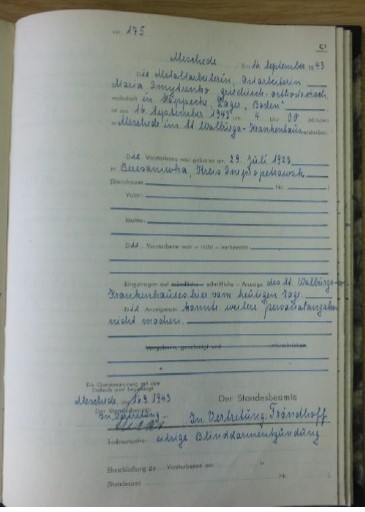 Nr. 175
C
Meschede, den 16. September 1943
Die Metallarbeiterin, Ostarbeiterin
Maria Dmytrenko, griechisch-orthodoxisch,
wohnhaft in Höppecke, Lager „Boden"
ist am 16. September 1943 um 4 Uhr 00 Minuten
in Meschede im St. Walburga-Krankenhaus verstorben.
Die Verstorbene war geboren am 29. Juli 1923
in Beresanowka, Kreis Dnepropetrowsk
(Standesamt Nr. )
Vater:
Mutter:
D Verstorbene war – nicht – verheiratet
Eingetragen auf mündliche – schriftliche – Anzeige des St. Walburga-
Krankenhauses hier vom heutigen Tage.
D Anzeigende konnte weitere Personalangaben
nicht machen.
Vorgelesen, genehmigt und unterschrieben
Die Übereinstimmung mit dem
Erstbuch wird beglaubigt.
Meschede, den 16.9. 1943
Der Standesbeamte
Der Standesbeamte
In Vertretung
In Vertretung:
Todesursache: eitrige Blinddarmentzündung
Eheschließung de Verstorbenen am
(Standesamt Nr. )